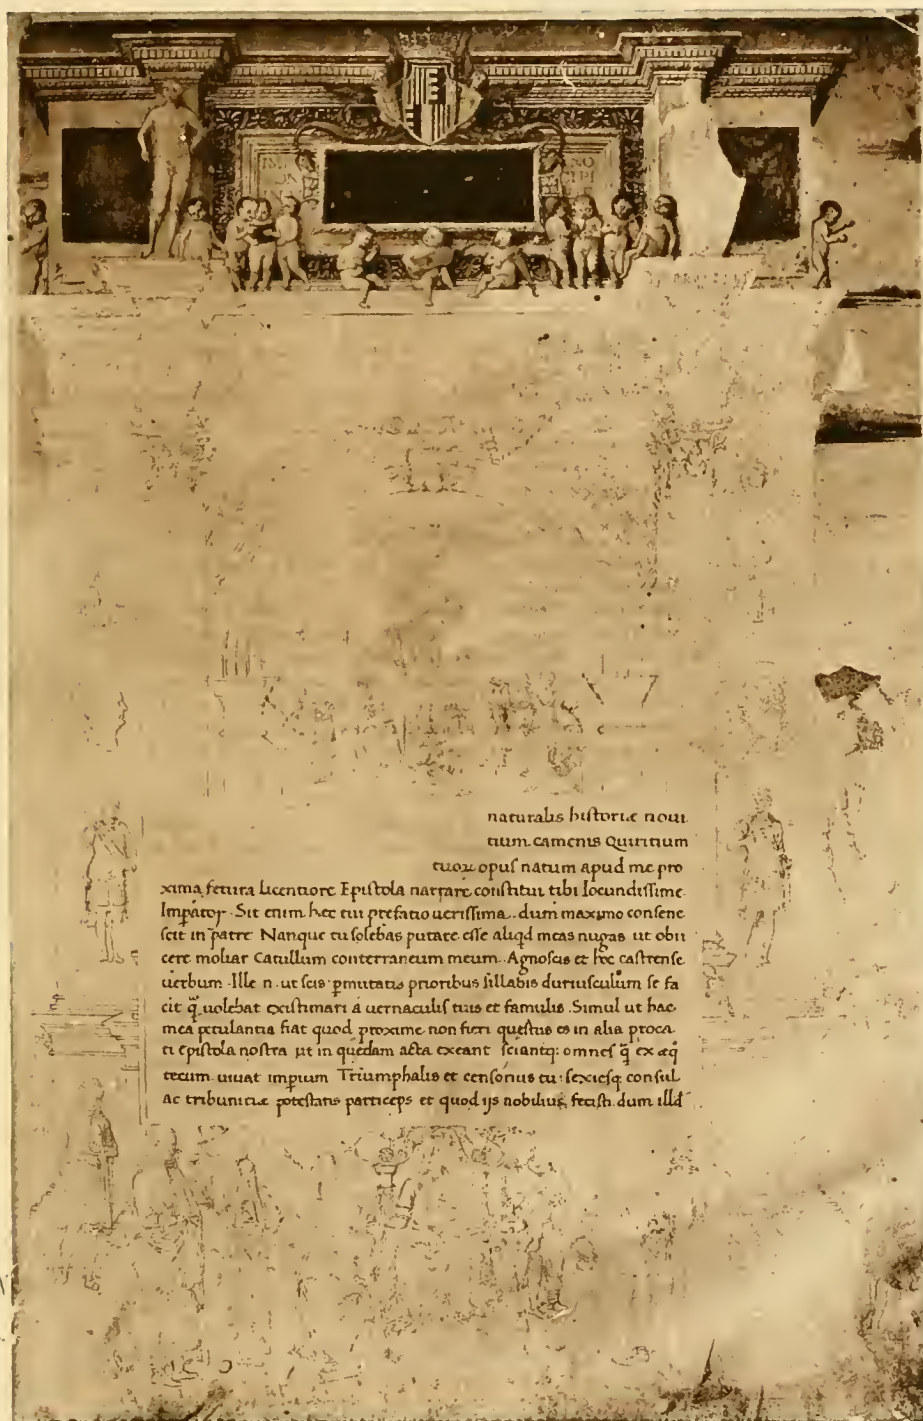 naturalis historiæ noui
tium camenis Quiritium
tuoꝝ opus natum apud me pro
xima fetura licentiore Epistola narrare constitui tibi Iocundissime
Imp̄ator. Sit enim hec tui prefatio uerissima. dum maximo consene
scit in patre Nanque tu solebas putare esse aliqd meas nugas ut obii
cere moliar Catullum conterraneum meum. Agnoscis et hoc castrense
uerbum. Ille .n. ut scis p̱mutatis prioribus sillabis duriusculum se fa
cit q̄ uolebat existimari á uernaculis tuis et famulis. Simul ut hac
mea petulantia fiat quod proxime non fieri questus es in alia proca
ti epistola nostra ut in quedam acta exeant sciantq; omnes q̄ ex æq̊
tecum uiuat imp̱ium Triumphalis et censorius tu: sexiesq; consul
ac tribunitiæ potestatis particeps et quod ijs nobilius fecisti. dum illd